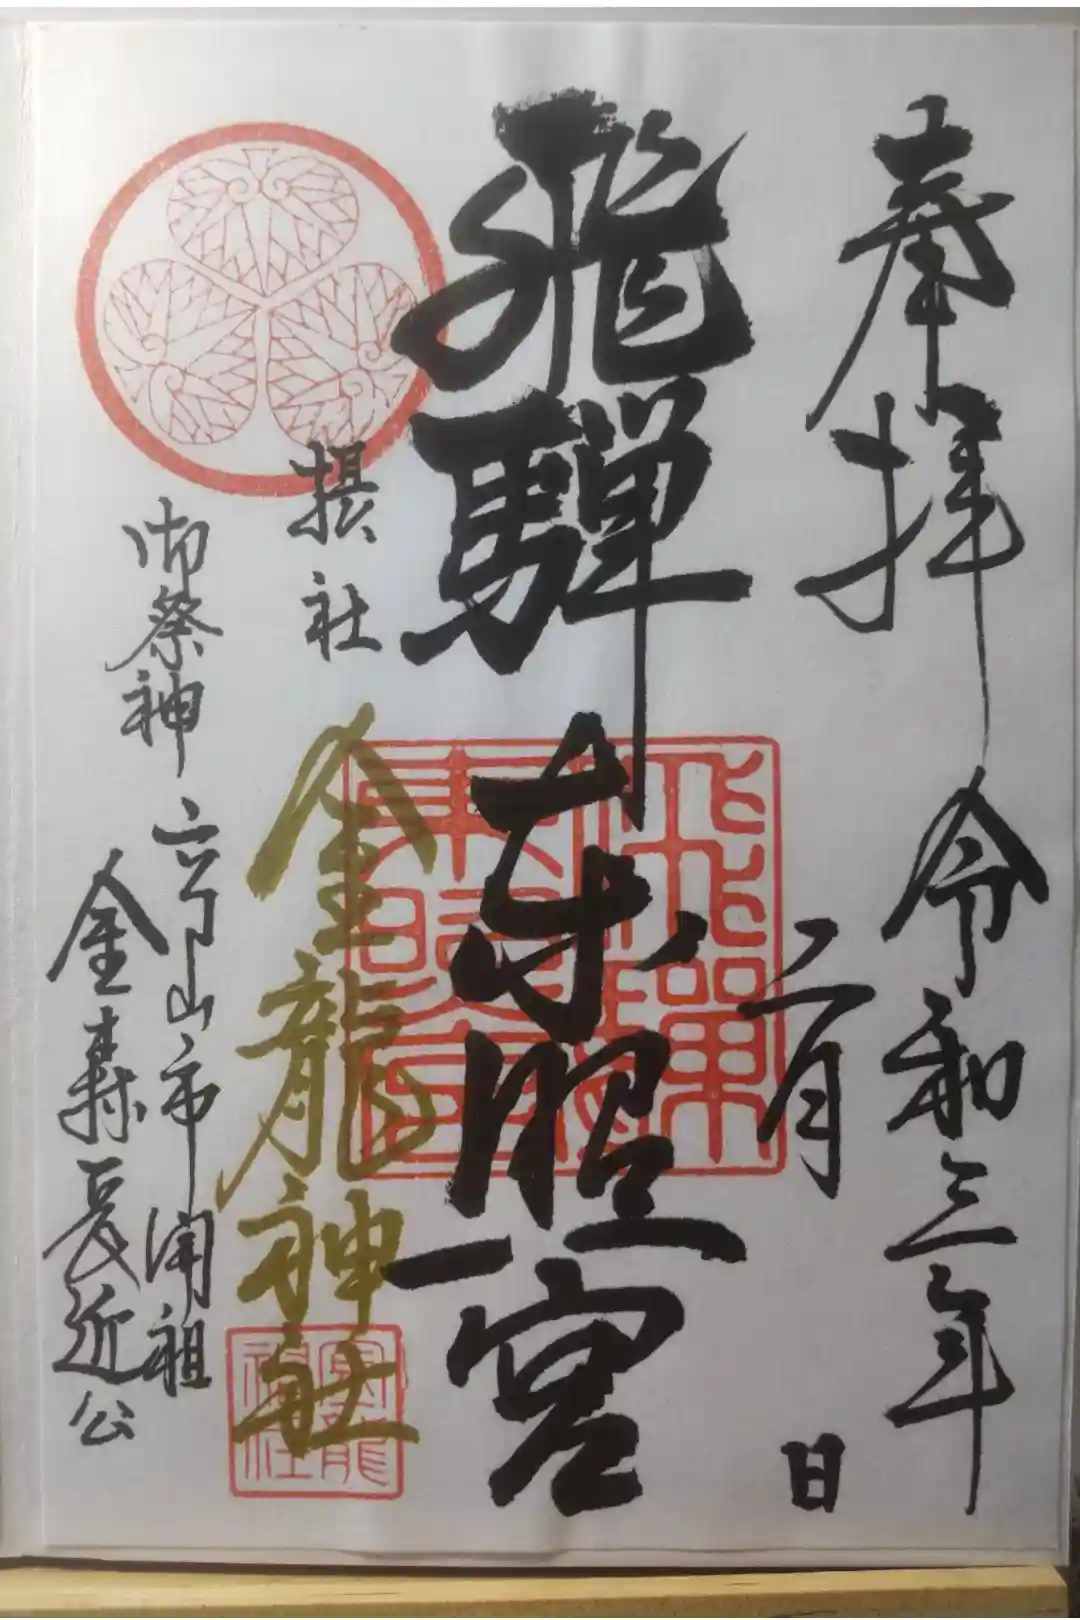 奉拝
令和三年
二月
日
飛騨東照宮
飛騨
東照宮
摂社
金龍神社
金龍
神社
御祭神
高山市開祖
金森長近公